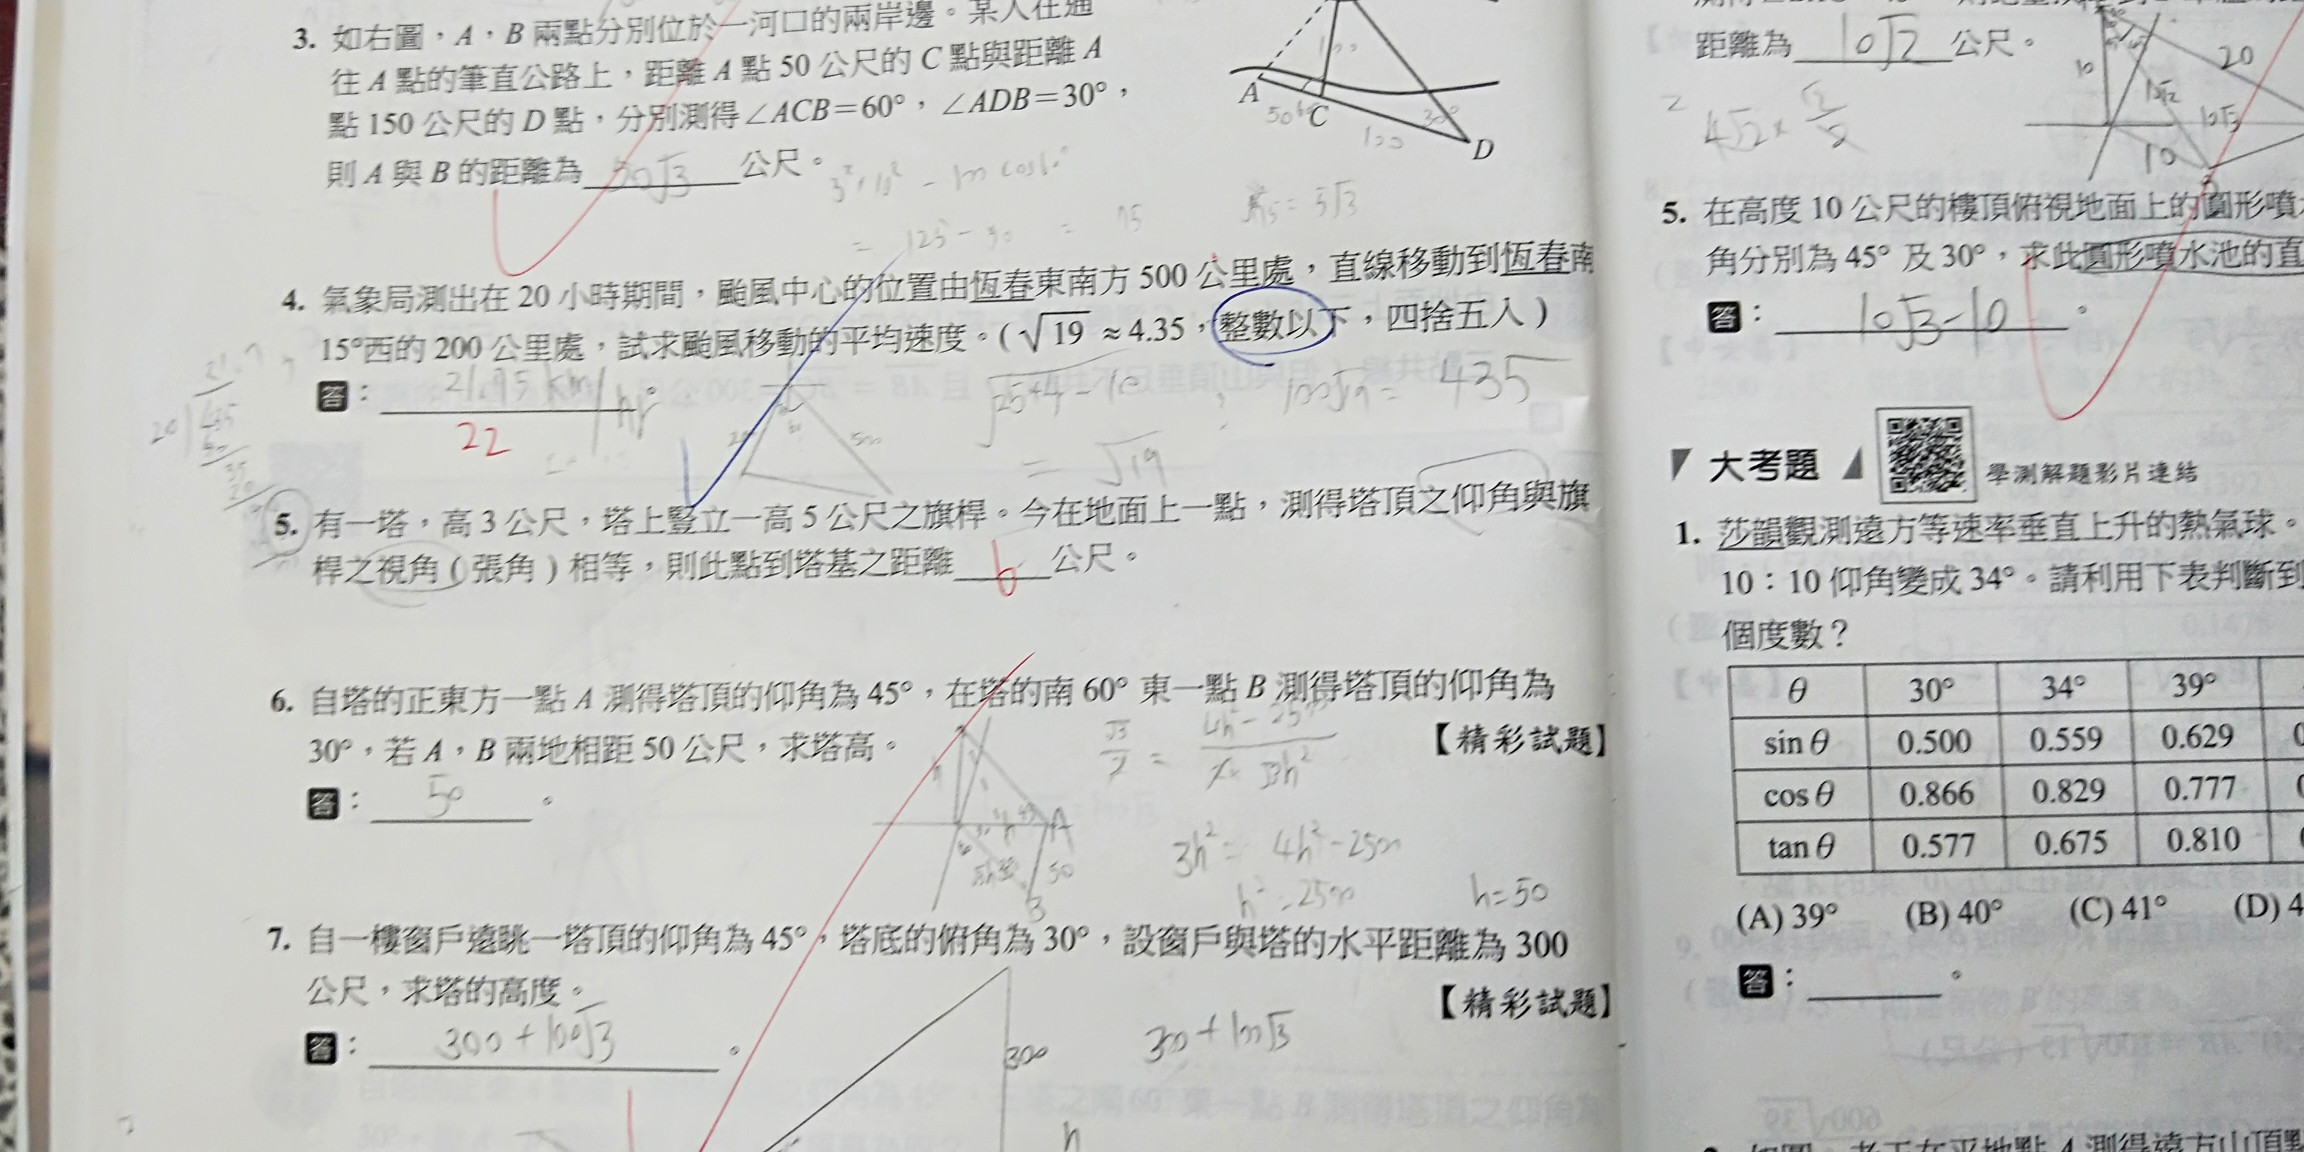 3. 如右圖，A，B 兩點分別位於一河口的兩岸邊。某人在通
往 A 點的筆直公路上，距離 A 點 50 公尺的 C 點與距離 A
點 150 公尺的 D 點，分別測得∠ACB＝60°，∠ADB＝30°，
則 A 與 B 的距離為 50√3 公尺。
= 125 - 50 = 75
√75 = 5√3
A
C
D
50
60°
100
30°
4. 氣象局測出在 20 小時期間，颱風中心的位置由恆春東南方 500 公里處，直線移動到恆春南
15°西的 200 公里處，試求颱風移動的平均速度。(√19 ≈ 4.35，整數以下，四捨五入）
答： 21.75 km/hr 。
22
√25+4-10
= √19
100√19 = 435
5. 有一塔，高 3 公尺，塔上豎立一高 5 公尺之旗桿。今在地面上一點，測得塔頂之仰角與旗
桿之視角（張角）相等，則此點到塔基之距離 6 公尺。
6. 自塔的正東方一點 A 測得塔頂的仰角為 45°，在塔的南 60° 東一點 B 測得塔頂的仰角為
30°，若 A，B 兩地相距 50 公尺，求塔高。
【精彩試題】
答： 50 。
A
50
B
3h² = 4h² - 2500
h² = 2500
h = 50
7. 自一樓窗戶遠眺一塔頂的仰角為 45°，塔底的俯角為 30°，設窗戶與塔的水平距離為 300
公尺，求塔的高度。
【精彩試題】
答： 300 + 100√3 。
300
h
300 + 100√3
距離為 10√2 公尺。
10
20
10√3
10
5. 在高度 10 公尺的樓頂俯視地面上的圓形噴
角分別為 45° 及 30°，求此圓形噴水池的直
答： 10√3-10 。
大考題
學測解題影片連結
1. 莎韻觀測遠方等速率垂直上升的熱氣球。
10：10 仰角變成 34°。請利用下表判斷到
個度數？
θ 30° 34° 39°
sin θ 0.500 0.559 0.629
cos θ 0.866 0.829 0.777
tan θ 0.577 0.675 0.810
(A) 39° (B) 40° (C) 41° (D) 4
答： 。